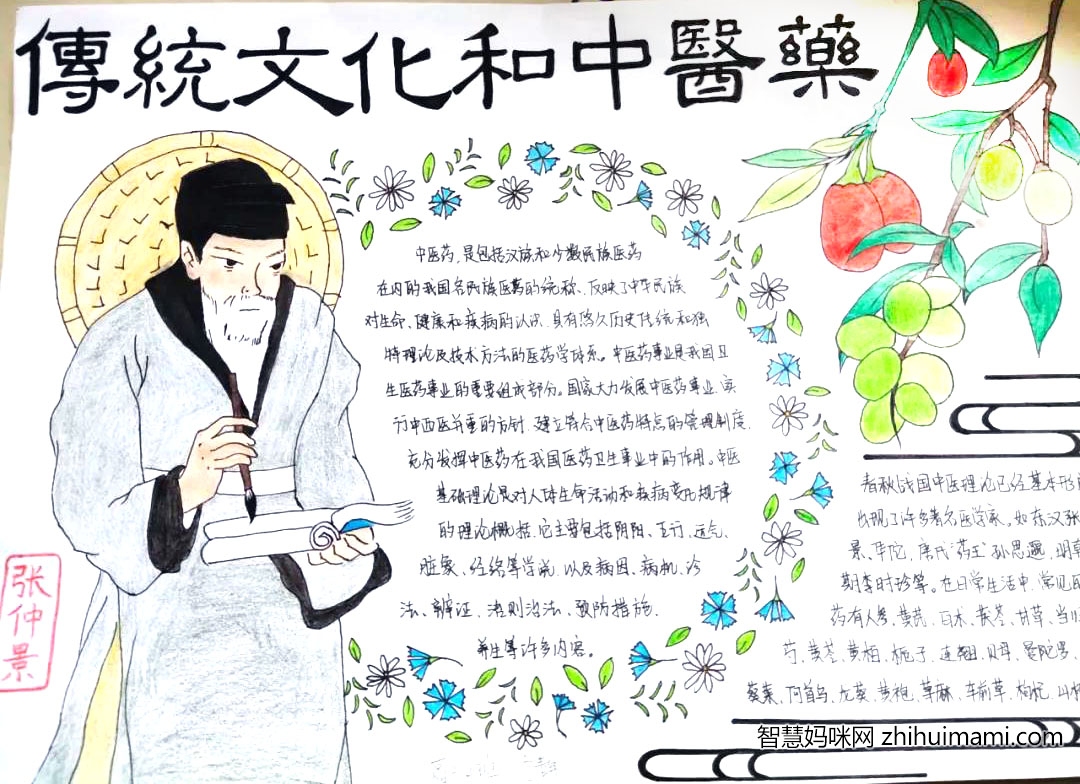 傳統文化和中醫藥
中医药，是包括汉族和少数民族医药
在内的我国各民族医药的统称、反映了中华民族
对生命、健康和疾病的认识，具有悠久历史传统和独
特理论及技术方法的医药学体系。中医药事业是我国卫
生医药事业的重要组成部分。国家大力发展中医药事业、实
行中西医并重的方针，建立符合中医药特点的管理制度，
充分发挥中医药在我国医药卫生事业中的作用。中医
基础理论是对人体生命活动和疾病变化规律
的理论概括，它主要包括阴阳、五行、运气、
脏象、经络等学说，以及病因、病机、诊
法、辨证、治则治法、预防措施、
养生等许多内容。
张仲景
春秋战国中医理论已经基本形
出现了许多著名医学家，如东汉张
景、华佗、唐代"药王"孙思邈，明朝
期李时珍等。在日常生活中，常见
药有人参、黄芪、白术、茯苓、甘草、当
芍、黄芩、黄柏、栀子、连翘、贝母、曼陀罗、
葵菜、何首乌、黄柏、草麻、车前草、枸杞、山
智慧妈咪网 zhihuimami.com